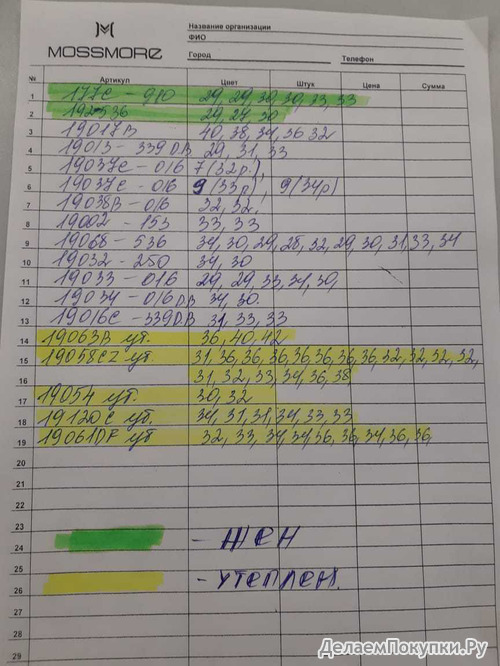 MOSSMORE
Название организации
ФИО
Город Телефон
№ Артикул Цвет Штук Цена Сумма
1 177С-910 29, 29, 30, 30, 33, 33
2 192536 29, 29, 30
3 19017В 40, 38, 34, 36 32
4 19013-339DB 29, 31, 33
5 19037С-016 7(32р.),
6 19037С-016 9(33р), 9(34р)
7 19038В-016 32, 32,
8 19002-153 33, 33
9 19068-536 34, 30, 29, 28, 32, 29, 30, 31, 33, 34
10 19032-250 34, 30
11 19033-016 29, 29, 33, 34, 30,
12 19034-016DB 34, 30.
13 19016С-339DB 31, 33, 33
14 19063В ут. 36, 40, 42
15 19058CZ ут 31, 36, 36, 36, 36, 36, 36, 36, 32, 32, 32, 32,
16 31, 32, 33, 34, 36, 38
17 19054 ут. 30, 32
18 19120С ут. 34, 31, 31, 34, 33, 33
19 19061DF ут 32, 33, 34, 34, 36, 36, 34, 36, 36,
20
21
22
23 - ЖЕН
24
25 - УТЕПЛЕН.
26
27
28
29
ДелаемПокупки.Ру